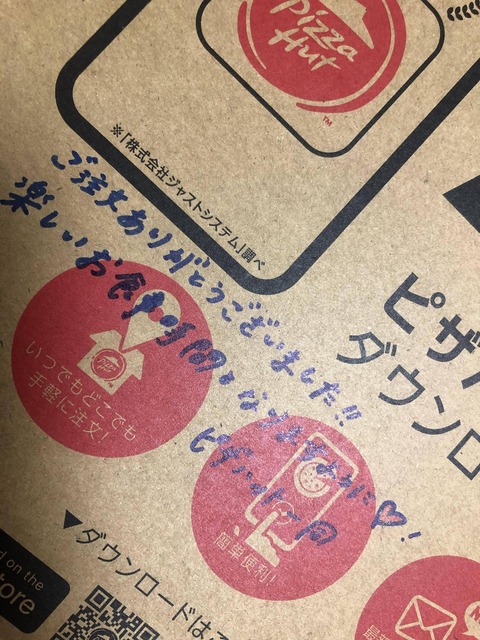 Pizza
Hut
TM
※「株式会社ジャストシステム」調べ
ご注文ありがとうございました!!
楽しいお食事時間となりますように♡!
ピザハット一同
いつでもどこでも
手軽に注文!
簡単便利!
ピザハ
ダウンロ
▼ダウンロードはこ
d on the
tore